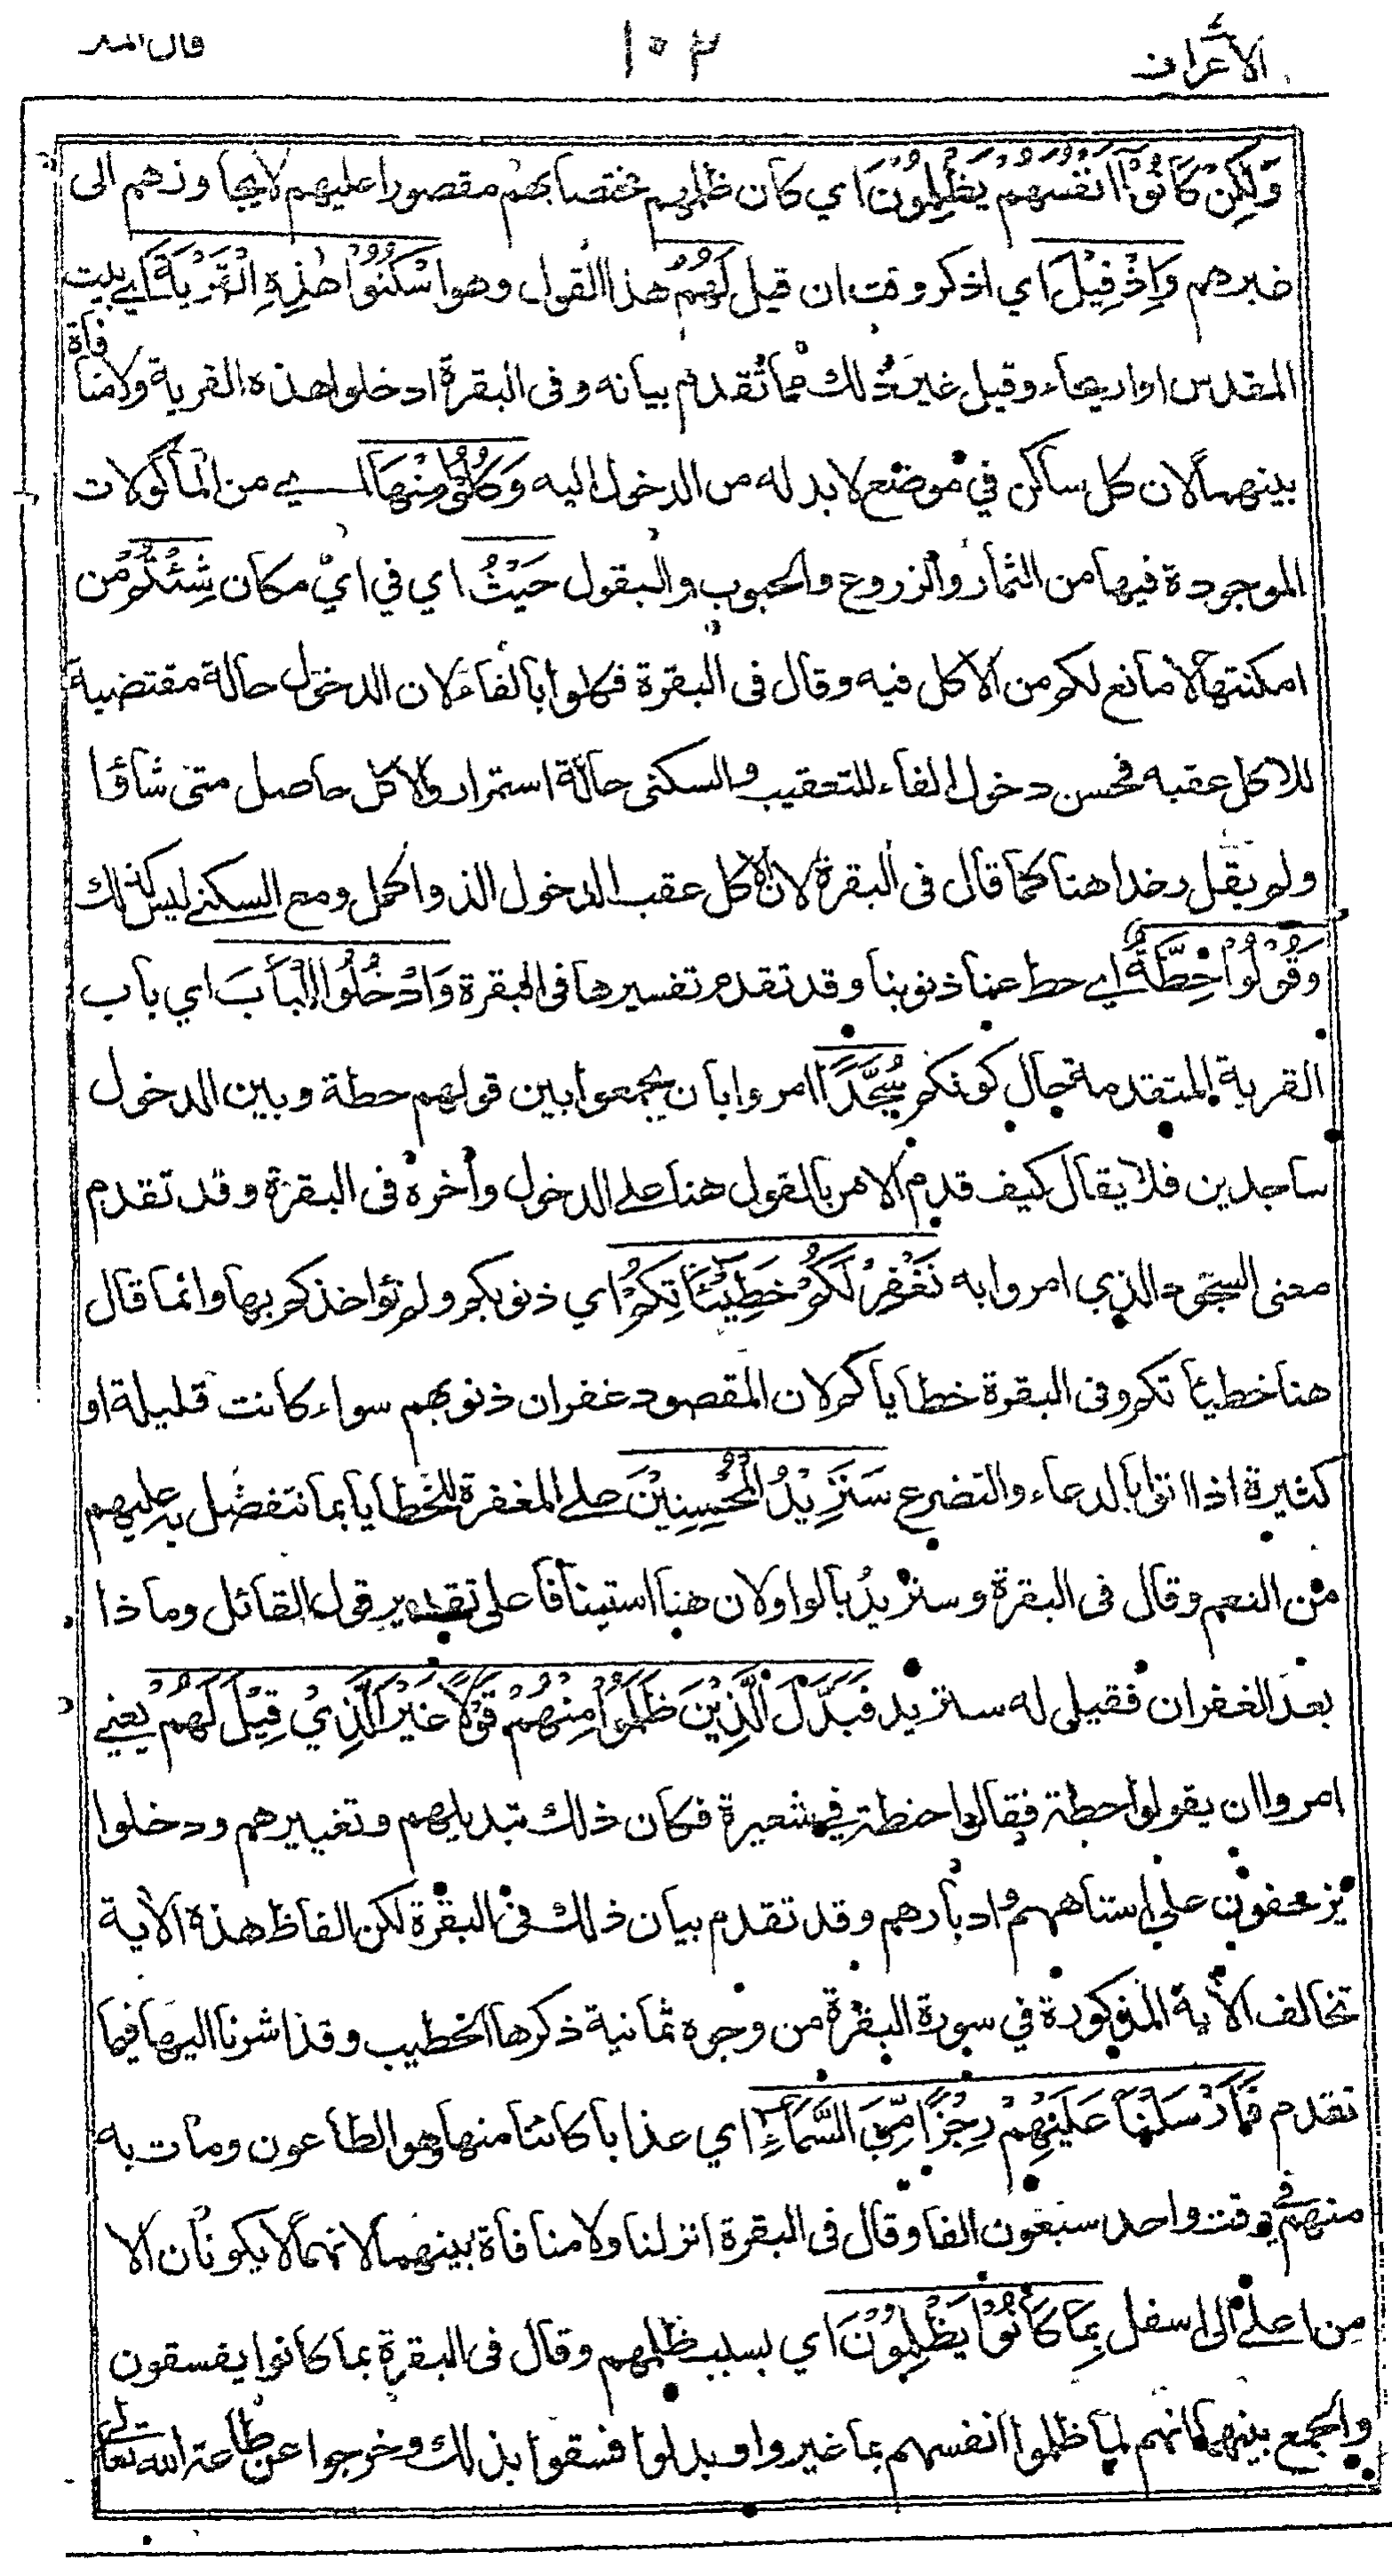 الأعراف ١٠٢ قال الملأ
وَلَكِنْ كَانُوْٓا اَنْفُسَهُمْ يَظْلِمُوْنَ اي كان ظلمهم مختصا بهم مقصورا عليهم لا يجاوزهم الى
غيرهم وَاِذْ قِيْلَ اي اذكر وقت ان قيل لَهُمُ هذا القول وهو اسْكُنُوْا هٰذِهِ الْقَرْيَةَ اي بيت
المقدس او اريحاء وقيل غير ذلك مما تقدم بيانه وفى البقرة ادخلوا هذه القرية ولا منافاة
بينهما لان كل ساكن في موضع لا بد له من الدخول اليه وَكُلُوْا مِنْهَا اي من المأكولات
الموجودة فيها من الثمار والزروع والحبوب والبقول حَيْثُ اي في اي مكان شِئْتُمْ من
امكنتها لا مانع لكم من الاكل فيه وقال فى البقرة فكلوا بالفاء لان الدخول حالة مقتضية
للاكل عقبه فحسن دخول الفاء للتعقيب والسكنى حالة استمرار والاكل حاصل متى شاؤا
ولم يقل رغدا هنا كما قال فى البقرة لان الاكل عقب الدخول الذ واكمل ومع السكنى ليس كذلك
وَقُوْلُوْا حِطَّةٌ اي حط عنا ذنوبنا وقد تقدم تفسيرها فى البقرة وَادْخُلُوا الْبَابَ اي باب
القرية المتقدمة حال كونكم سُجَّدًا امروا بان يجمعوا بين قولهم حطة وبين الدخول
ساجدين فلا يقال كيف قدم الامر بالقول هنا على الدخول وأخره فى البقرة وقد تقدم
معنى السجود الذي امروا به نَغْفِرْ لَكُمْ خَطِيْئٰتِكُمْ اي ذنوبكم ولم نؤاخذكم بها وانما قال
هنا خطيئاتكم وفى البقرة خطاياكم لان المقصود غفران ذنوبهم سواء كانت قليلة او
كثيرة اذا اتوا بالدعاء والتضرع سَنَزِيْدُ الْمُحْسِنِيْنَ على المغفرة للخطايا بما نتفضل به عليهم
من النعم وقال فى البقرة وسنزيد بالواو لان هنا استينافا على تقدير قول القائل وماذا
بعد الغفران فقيل له سنزيد فَبَدَّلَ الَّذِيْنَ ظَلَمُوْا مِنْهُمْ قَوْلًا غَيْرَ الَّذِيْ قِيْلَ لَهُمْ يعني
امروا ان يقولوا حطة فقالوا حنطة في شعيرة فكان ذلك تبديلهم وتغييرهم ودخلوا
يزحفون على استاههم وادبارهم وقد تقدم بيان ذلك فى البقرة لكن الفاظ هذه الآية
تخالف الآية المذكورة في سورة البقرة من وجوه ثمانية ذكرها الخطيب وقد اشرنا اليها فيما
تقدم فَاَرْسَلْنَا عَلَيْهِمْ رِجْزًا مِّنَ السَّمَآءِ اي عذابا كائنا منها وهو الطاعون ومات به
منهم في وقت واحد سبعون الفا وقال فى البقرة انزلنا ولا منافاة بينهما لانهما لا يكونان الا
من اعلى الى اسفل بِمَا كَانُوْا يَظْلِمُوْنَ اي بسبب ظلمهم وقال فى البقرة بما كانوا يفسقون
والجمع بينهما انهم لما ظلموا انفسهم بما غيروا وبدلوا فسقوا بذلك وخرجوا عن طاعة الله تعالى